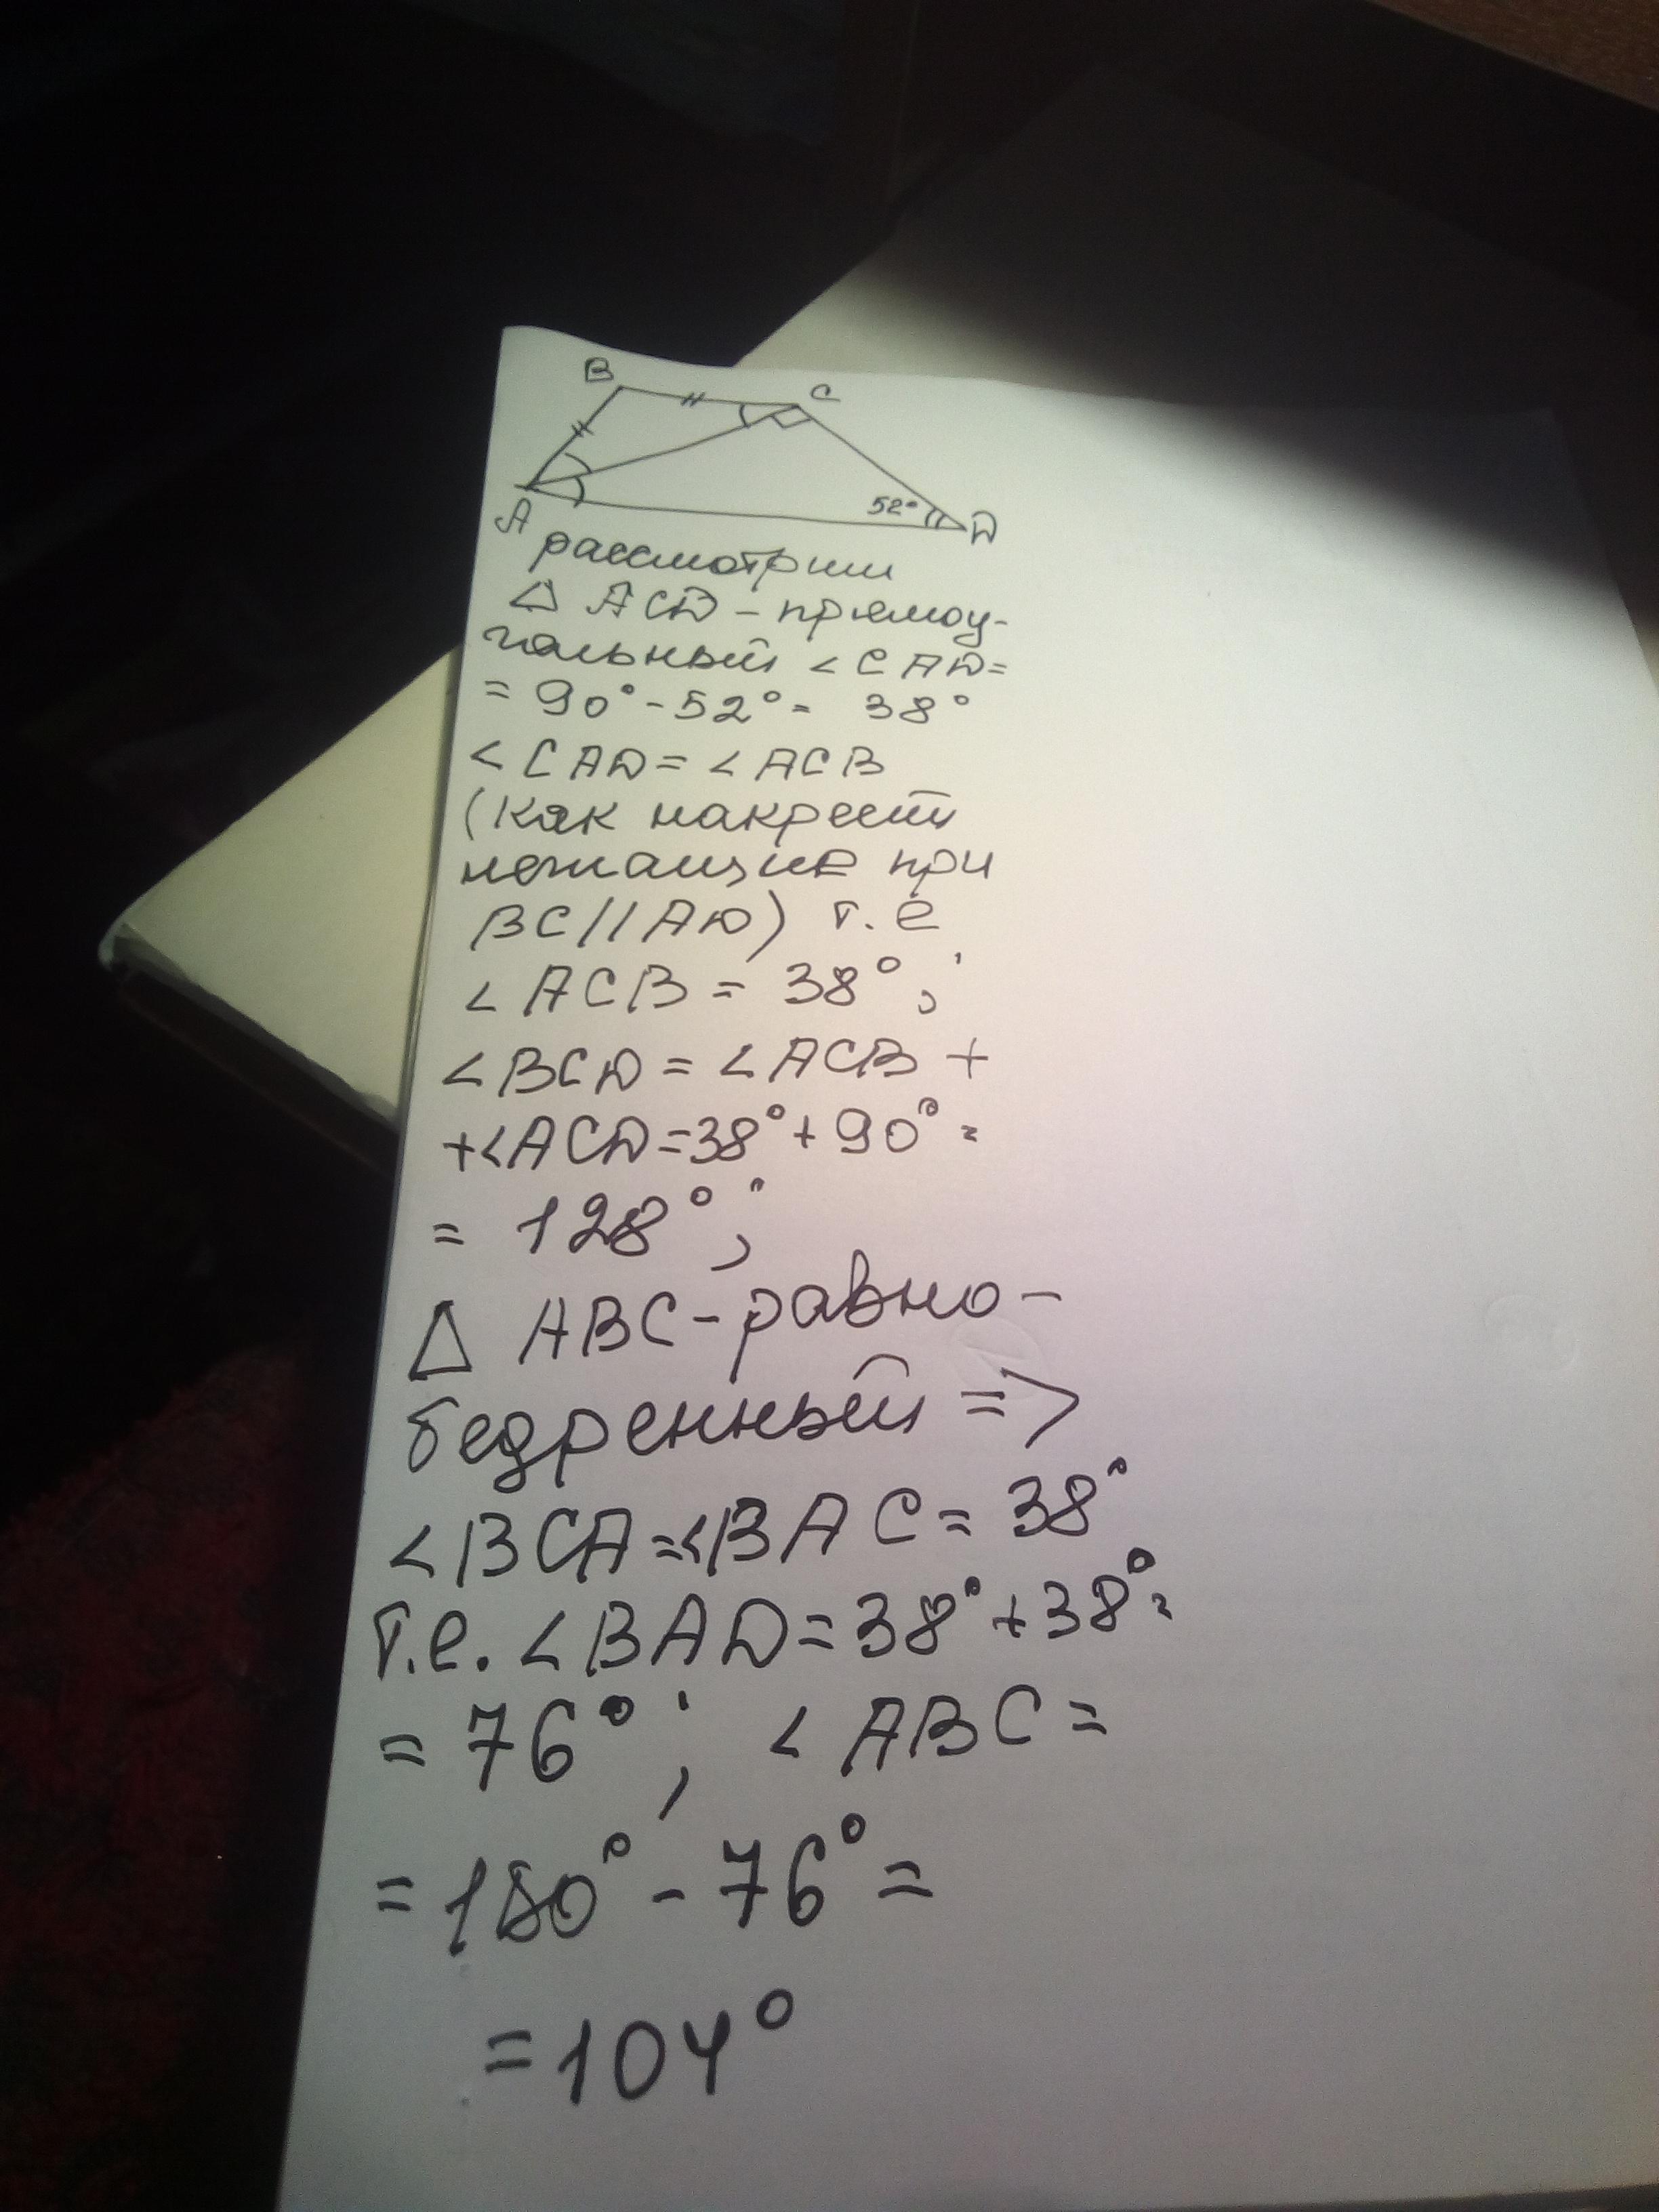 B
C
52°
A
D
рассмотрим
△ ACD - прямоу-
гольный <CAD=
= 90° - 52° = 38°
< CAD = < ACB
(как накрест
лежащие при
BC//AD) т.е
< ACB = 38°;
< BCD = < ACB +
+<ACD=38°+90°=
= 128°;
△ ABC - равно-
бедренный =>
<BCA=<BAC=38°
т.е. <BAD=38°+38°=
= 76°; < ABC=
= 180° - 76° =
= 104°